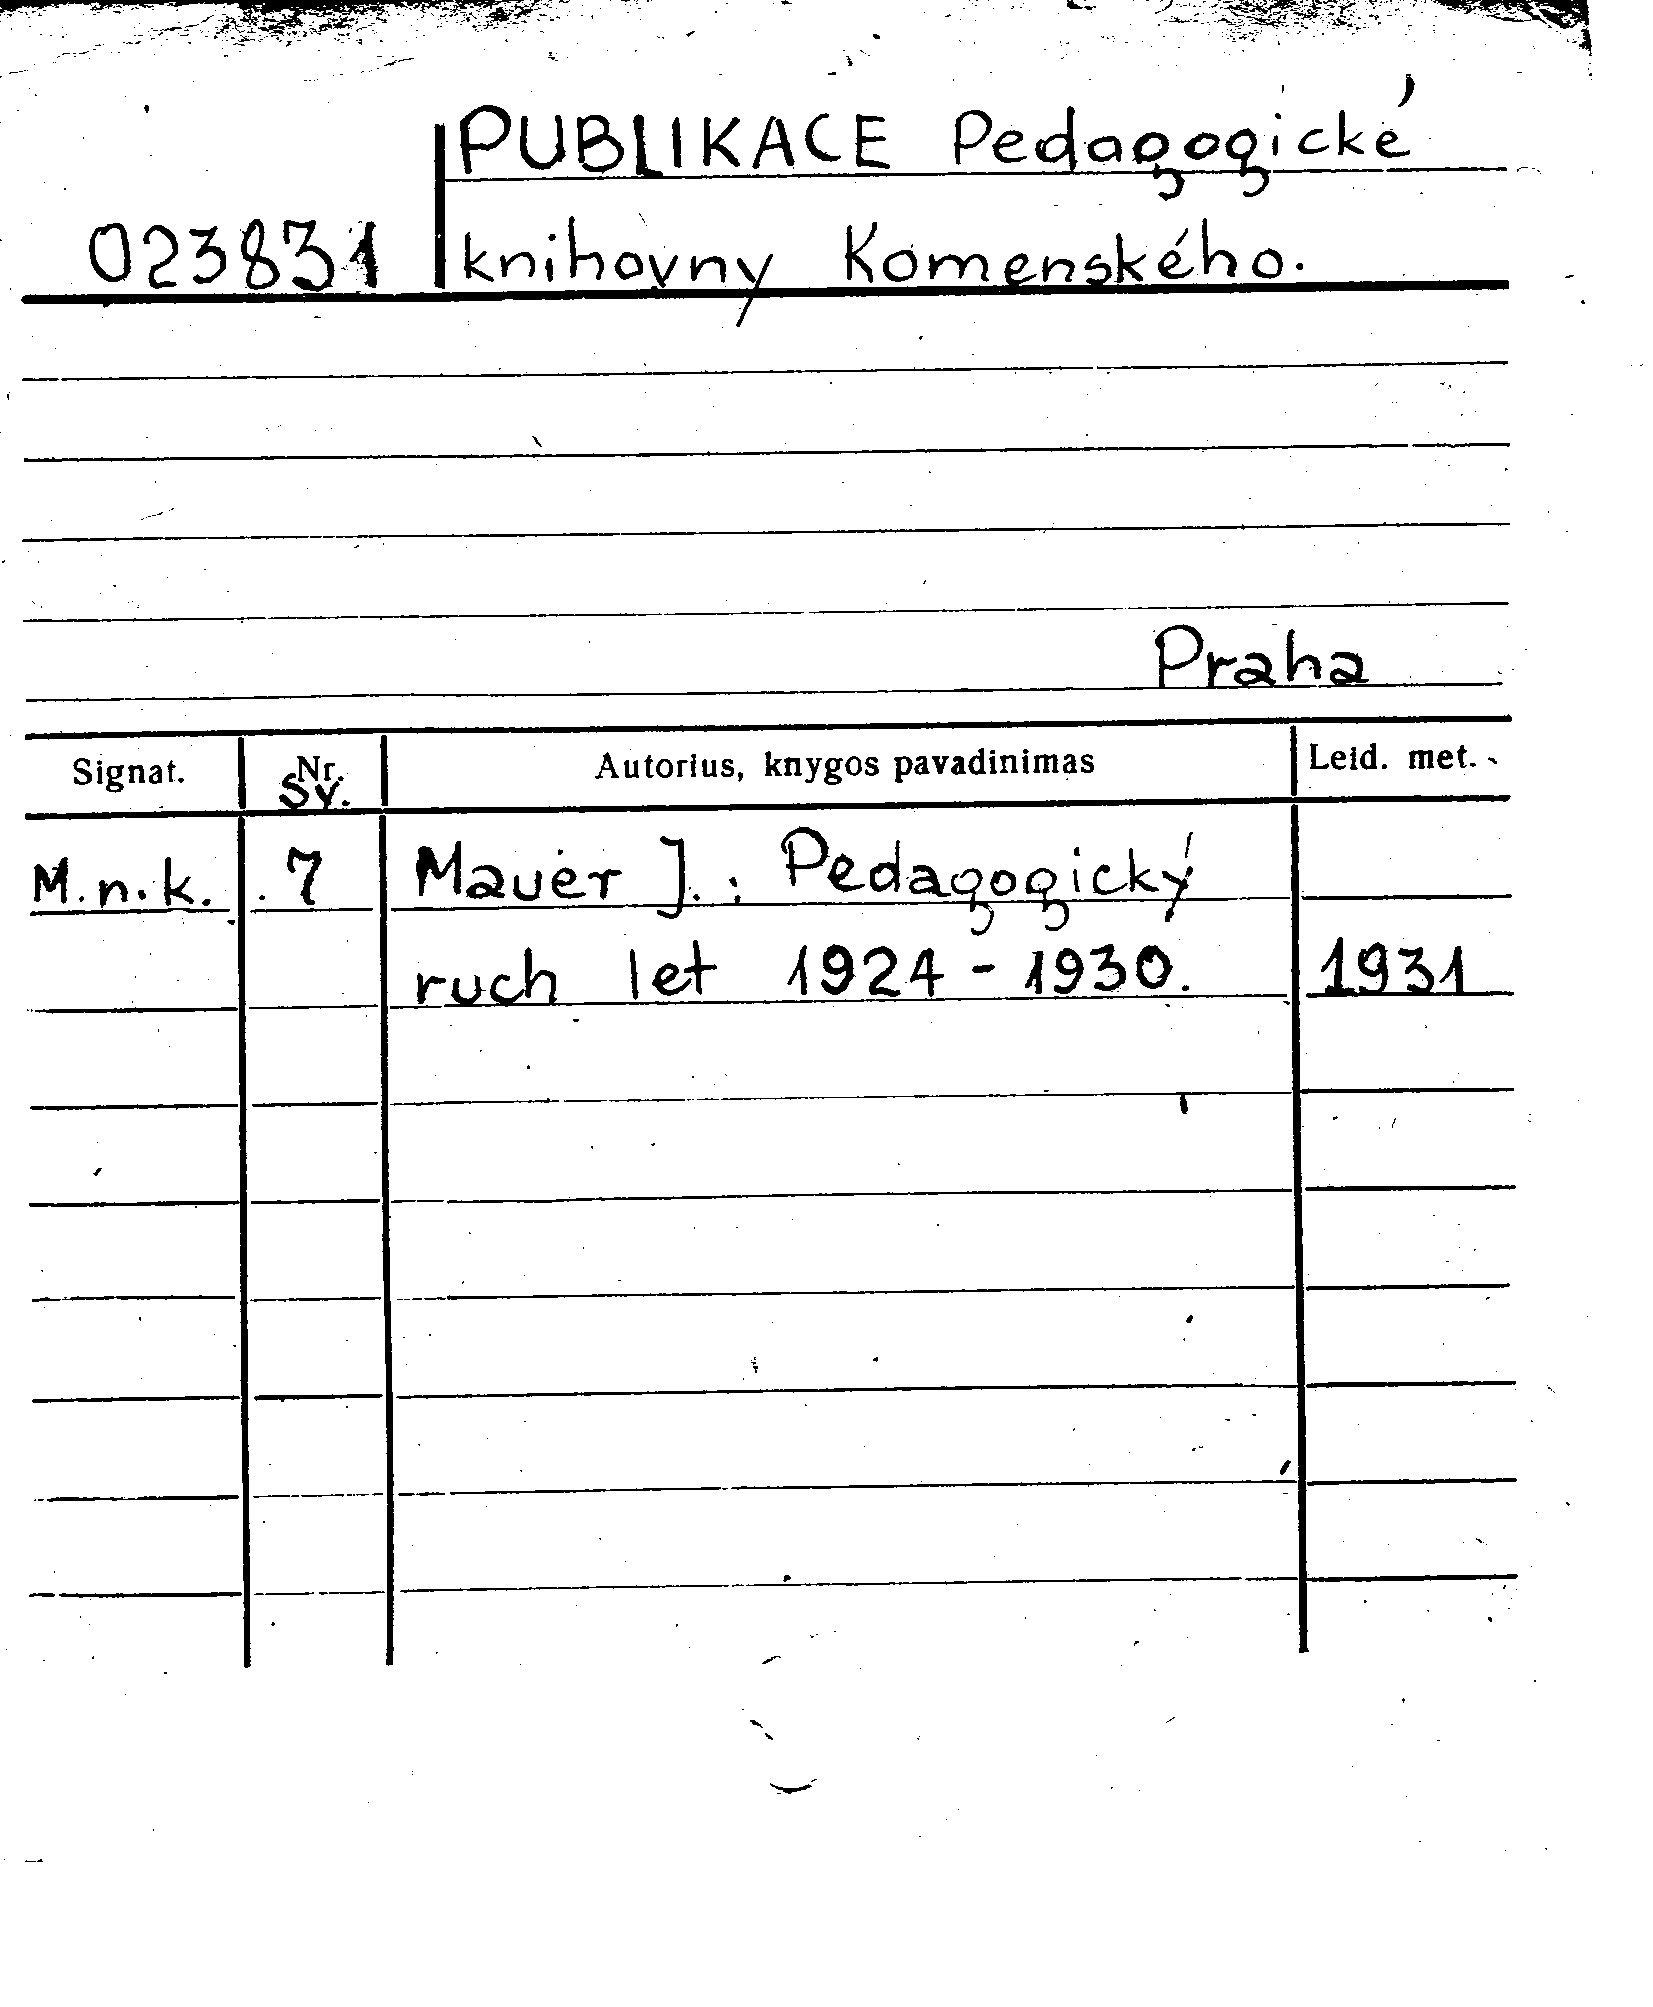 PUBLIKACE Pedagogické
023831 knihovny Komenského.
Praha
Signat. Nr. Autorius, knygos pavadinimas Leid. met.
Sv.
M.n.k. 7 Mauer J.: Pedagogický
ruch let 1924 - 1930. 1931